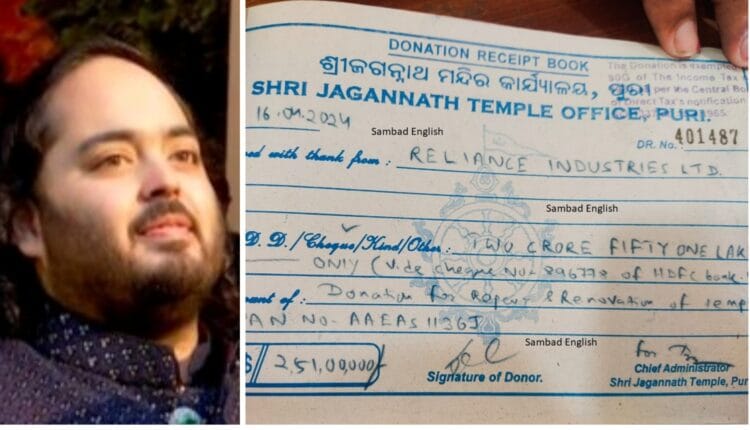 DONATION RECEIPT BOOK
ଶ୍ରୀଜଗନ୍ନାଥ ମନ୍ଦିର କାର୍ଯ୍ୟାଳୟ, ପୁରୀ
SHRI JAGANNATH TEMPLE OFFICE, PURI.
The Donation is exempted
80G of The Income Tax
per the Central Bo
of Direct Tax's notification
1965.
16.01.2024
Sambad English
DR. No. 401487
ed with thank from : RELIANCE INDUSTRIES LTD.
Sambad English
D. D./Cheque/Kind/Other : TWO CRORE FIFTY ONE LAK
ONLY (Vide cheque No. 896778 of HDFC bank
ment of : Donation for repair & Renovation of temp
AN NO- AAEAS1136J
Sambad English
2,51,00,000/
Signature of Donor.
for
Chief Administrator
Shri Jagannath Temple, Puri